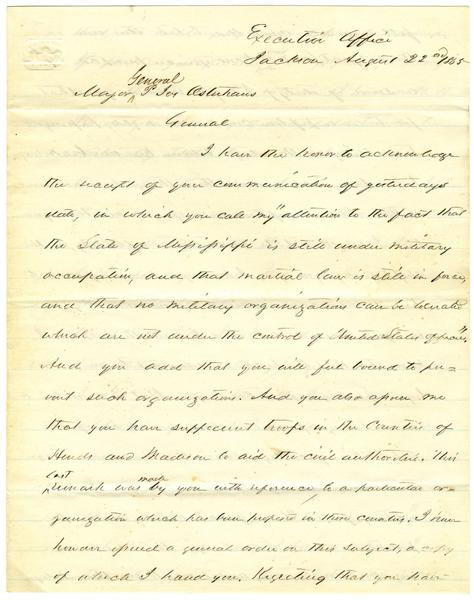 Executive Office
Jackson August 22nd 1865
General
Major P Jos Osterhaus
General
I have the honor to acknowledge
the receipt of your communication of yesterdays
date, in which you call my attention to the fact that
the State of Mississippi is still under military
occupation, and that martial law is still in force,
and that no military organizations can be tolerated
which are not under the control of United States officers,
And you add that you will feel bound to pre-
vent such organizations. And you also apprise me
that you have sufficient troops in the Counties of
Hinds and Madison to aid the civil authorities. This
last made
remark was by you with reference to a particular or-
ganization which has been proposed in those counties. I have
however issued a general order on this subject, a copy
of which I hand you. Regretting that you have